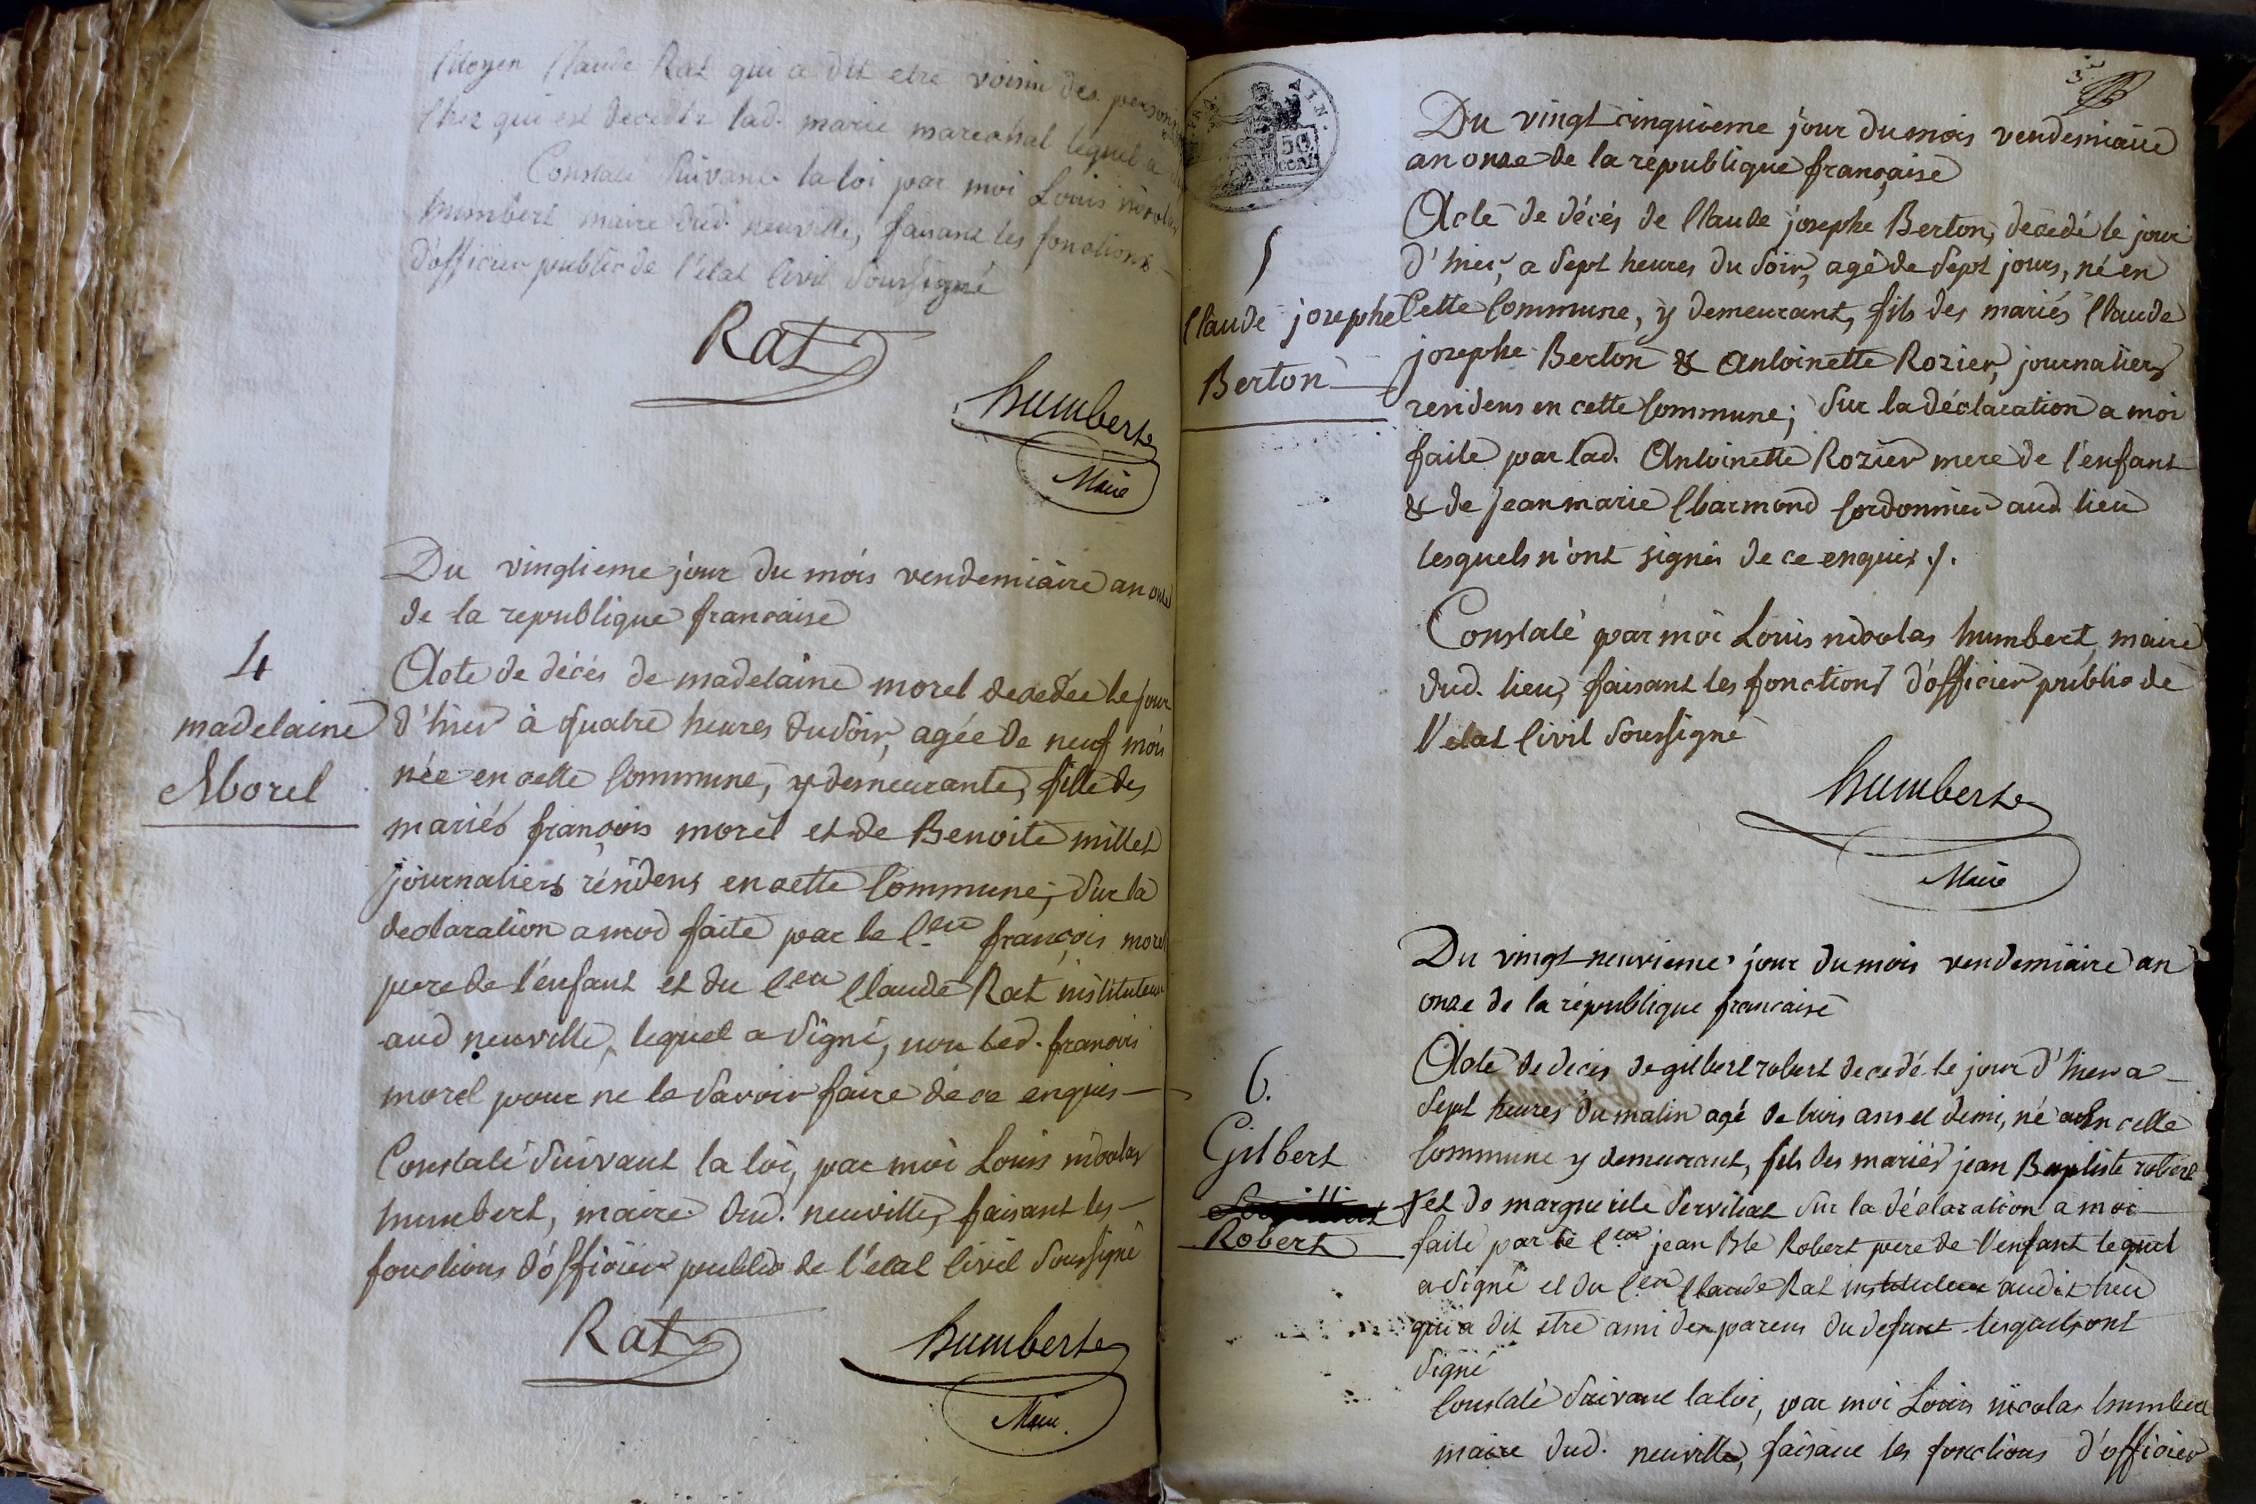 Citoyen Claude Rat qui a dit etre voisin des personnes
Chez qui est decedée lad. marie marechal lequel a
Constaté suivant la loi par moi Louis nicolas
humbert maire dud. neuville, faisant les fonctions
d'officier public de l'état Civil soussigné
Rat
humbert
Maire
4
madelaine
Morel
Du vingtieme jour du mois vendemiaire an onze
de la republique francaise
Acte de décés de madelaine morel decedée le jour
d'hier à quatre heures du soir, agée de neuf mois
née en cette Commune, y demeurante, fille des
mariés françois morel et de Benoite millet
journaliers résidens en cette Commune; sur la
declaration a moi faite par le Cen françois morel
pere de l'enfant et du Cen Claude Rat instituteur
aud neuville, lequel a signé, non led. francois
morel pour ne le savoir faire de ce enquis
Constaté suivant la loi, par moi Louis nicolas
humbert, maire dud. neuville, faisant les
fonctions d'officier public de l'état Civil soussigné
Rat
humbert
Maire
3
50
CENT
5
Claude josephe
Berton
Du vingt cinquieme jour du mois vendemiaire
an onze de la republique française
Acte de décés de Claude josephe Berton, decedé le jour
d'hier, a sept heures du soir, agé de sept jours, né en
Cette Commune, y demeurant, fils des mariés Claude
josephe Berton & Antoinette Rozier, journaliers
residens en cette Commune; sur la déclaration a moi
faite par lad. Antoinette Rozier mere de l'enfant
& de jean marie Charmond Cordonnier aud. lieu
lesquels n'ont signés de ce enquis ./.
Constaté par moi Louis nicolas humbert, maire
dud. lieu, faisant les fonctions d'officier public de
l'etat Civil soussigné
humbert
Maire
Du vingt neuvieme jour du mois vendemiaire an
onze de la république francaise
6.
Gilbert
Robert
Acte de décés de gilbert robert decedé le jour d'hier a
sept heures du matin agé de trois ans et demi, né en cette
Commune y demeurant, fils des mariés jean Baptiste robert
et de marguerite servillat sur la déclaration a moi
faite par le Cen jean Bte Robert pere de l'enfant lequel
a signé et du Cen Claude Rat instituteur audit lieu
qui a dit etre ami des parens du defunt lesquels ont
signé
Constaté suivant la loi, par moi Louis nicolas humbert
maire dud. neuville, faisant les fonctions d'officier